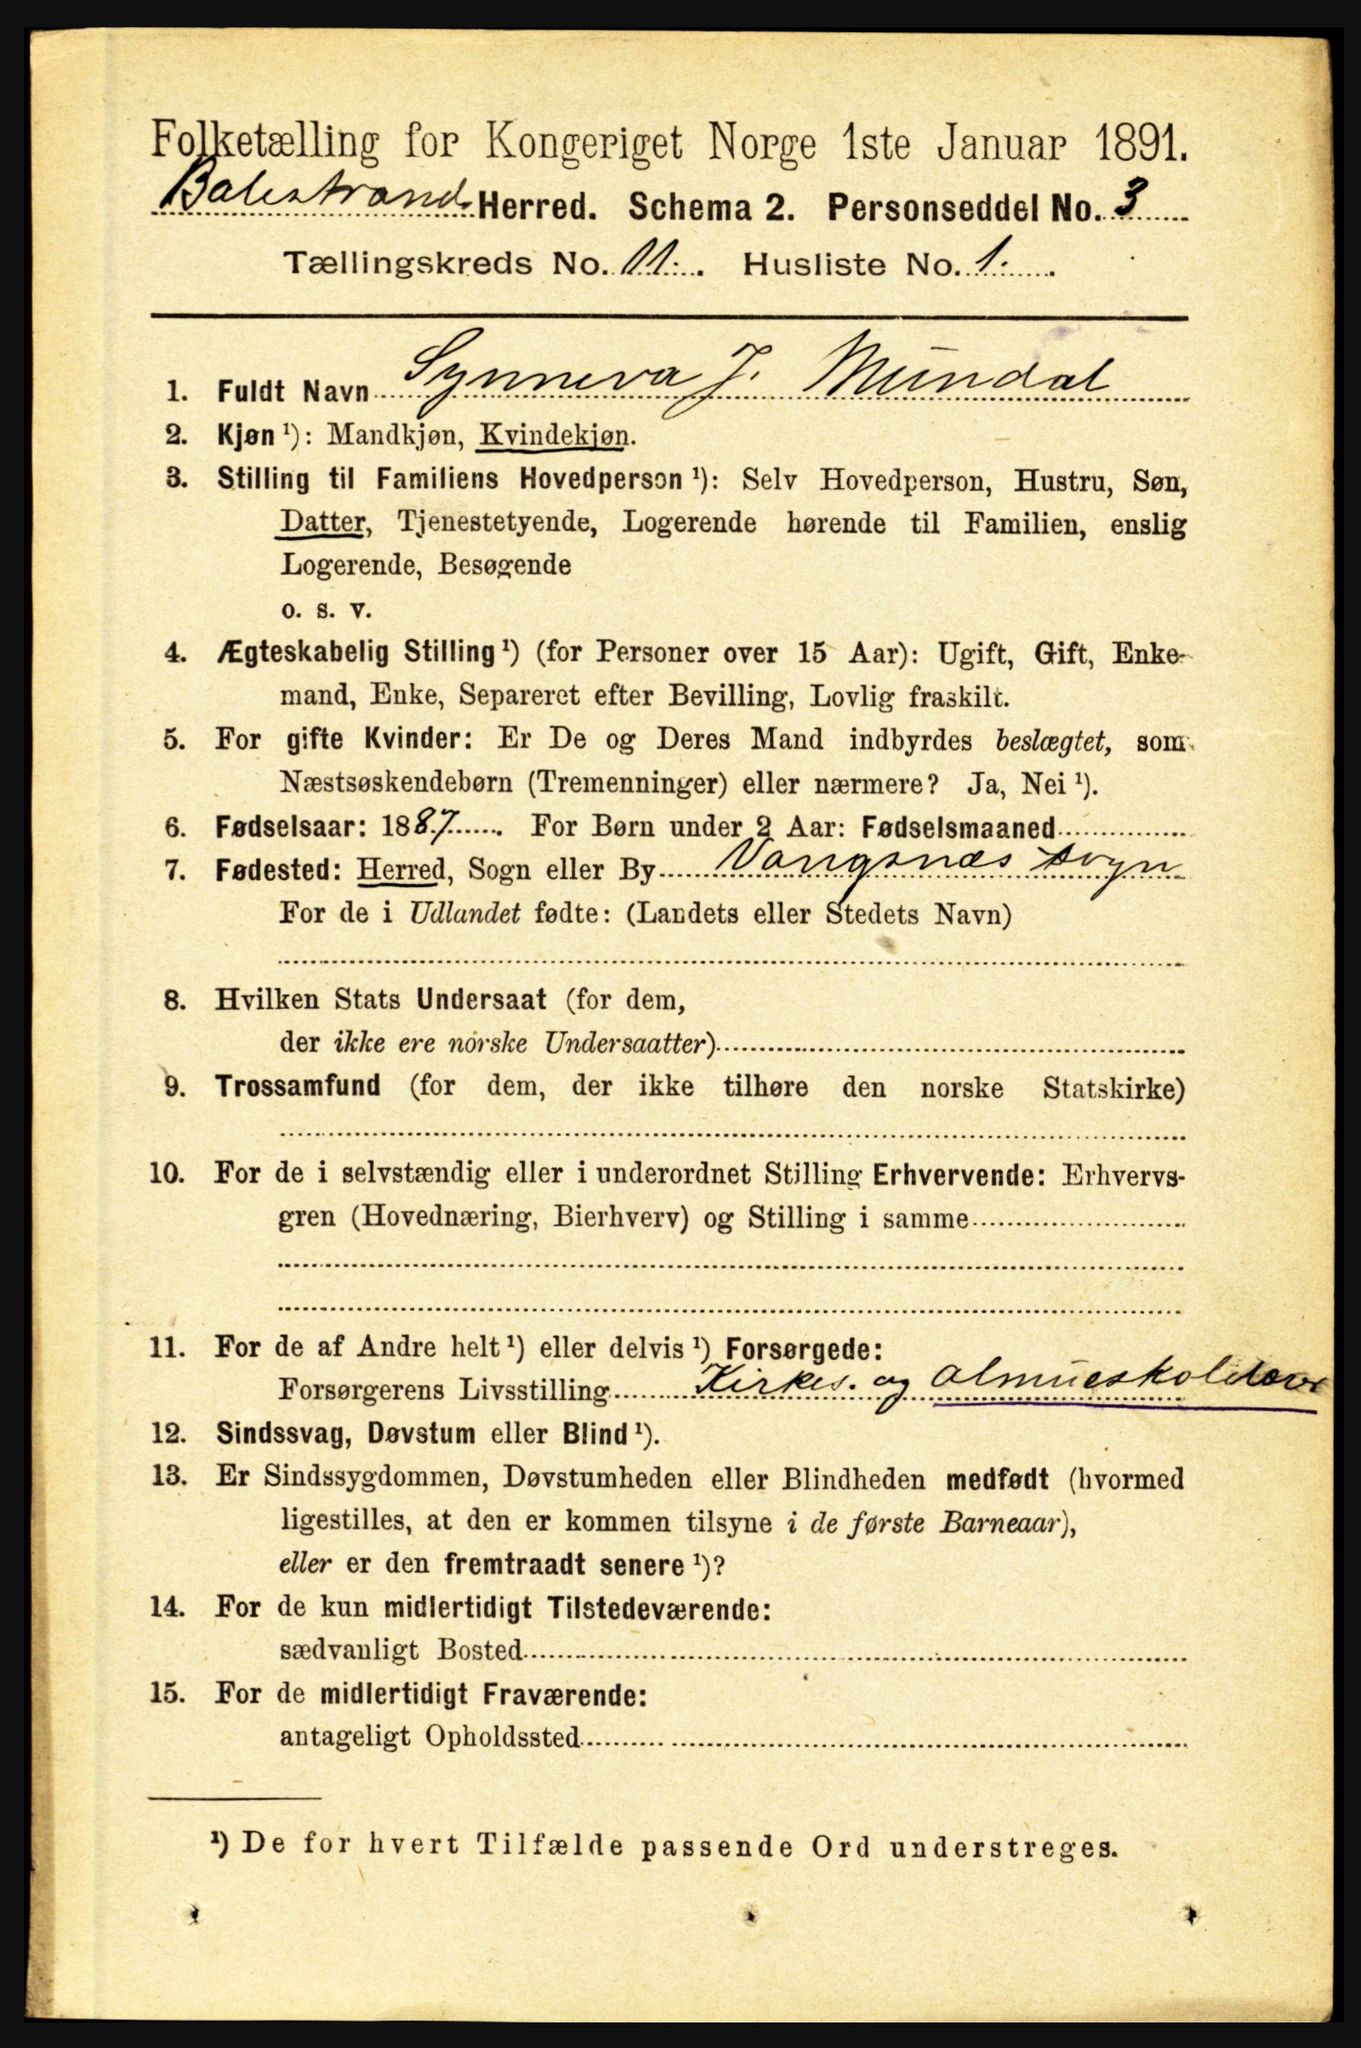 Folketælling for Kongeriget Norge 1ste Januar 1891.
Balestrand Herred. Schema 2. Personseddel No. 3
Tællingskreds No. 11. Husliste No. 1.
1. Fuldt Navn Synneva J. Mundal
2. Kjøn ¹): Mandkjøn, Kvindekjøn.
3. Stilling til Familiens Hovedperson ¹): Selv Hovedperson, Hustru, Søn,
Datter, Tjenestetyende, Logerende hørende til Familien, enslig
Logerende, Besøgende
o. s. v.
4. Ægteskabelig Stilling ¹) (for Personer over 15 Aar): Ugift, Gift, Enke-
mand, Enke, Separeret efter Bevilling, Lovlig fraskilt.
5. For gifte Kvinder: Er De og Deres Mand indbyrdes beslægtet, som
Næstsøskendebørn (Tremenninger) eller nærmere? Ja, Nei ¹).
6. Fødselsaar: 1887. For Børn under 2 Aar: Fødselsmaaned
7. Fødested: Herred, Sogn eller By Vangsnæs sogn
For de i Udlandet fødte: (Landets eller Stedets Navn)
8. Hvilken Stats Undersaat (for dem,
der ikke ere norske Undersaatter)
9. Trossamfund (for dem, der ikke tilhøre den norske Statskirke)
10. For de i selvstændig eller i underordnet Stilling Erhvervende: Erhvervs-
gren (Hovednæring, Bierhverv) og Stilling i samme
11. For de af Andre helt ¹) eller delvis ¹) Forsørgede:
Forsørgerens Livsstilling Kirkes. og almueskolelærer
12. Sindssvag, Døvstum eller Blind ¹).
13. Er Sindssygdommen, Døvstumheden eller Blindheden medfødt (hvormed
ligestilles, at den er kommen tilsyne i de første Barneaar),
eller er den fremtraadt senere ¹)?
14. For de kun midlertidigt Tilstedeværende:
sædvanligt Bosted
15. For de midlertidigt Fraværende:
antageligt Opholdssted
¹) De for hvert Tilfælde passende Ord understreges.